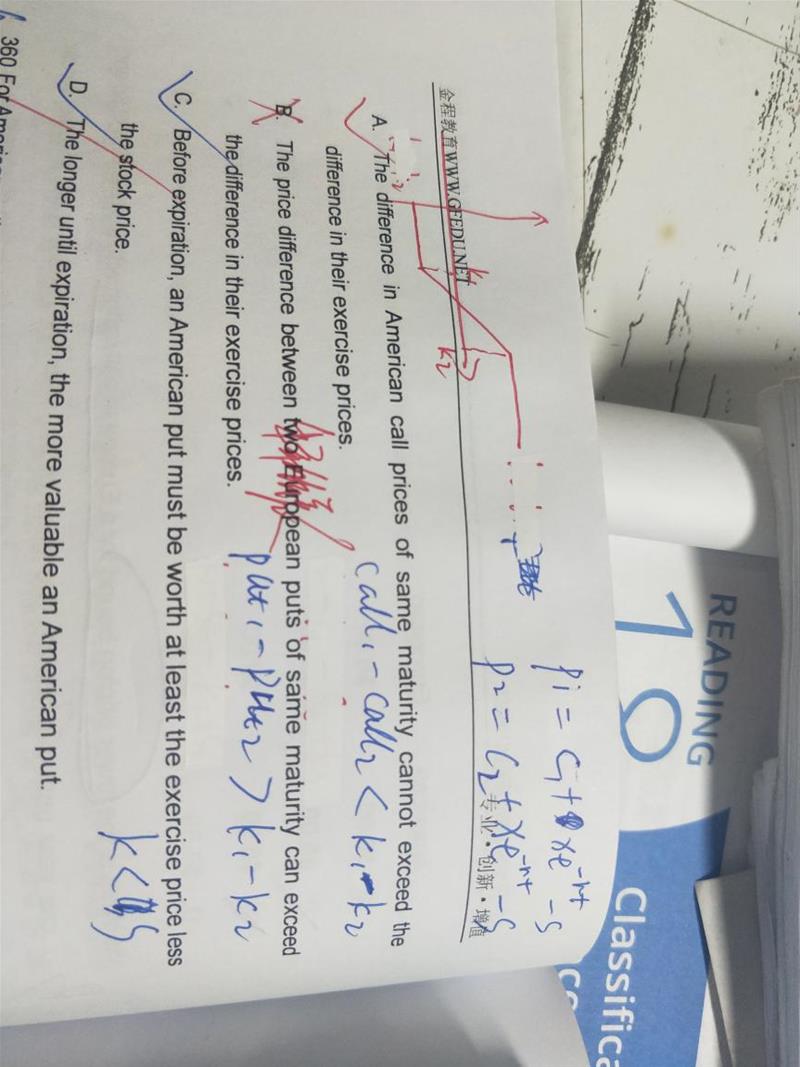 READING
10
Classifica
p1 = C1 + xe^-rt - S
p2 = C2 + xe^-rt - S
金程教育WWW.GFEDU.NET
专业·创新·增值
k1
k2
A. The difference in American call prices of same maturity cannot exceed the
difference in their exercise prices.
call1 - call2 < k1 - k2
B. The price difference between two European puts of same maturity can exceed
the difference in their exercise prices.
put1 - put2 > k1 - k2
C. Before expiration, an American put must be worth at least the exercise price less
the stock price.
k < S
D. The longer until expiration, the more valuable an American put.
360